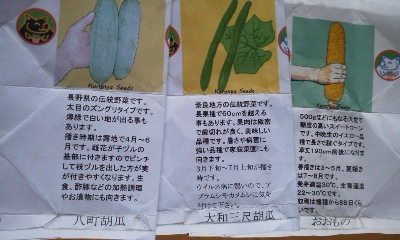 Kurenya Seeds
長野県の伝統野菜です。
太目のズングリタイプです。
薄緑で白い地が出る事も
あります。
播き時期は露地で4月～6
月です。雌花が子ヅルの
基部に付きますのでピンチ
して枝ヅルを出した方が実
が付きやすくなります。生
食、酢豚などの加熱調理
やお漬物にも向きます。
八町胡瓜
Kurenya Seeds
奈良地方の伝統野菜です。
長果種で60cmを超える
事もあります。果肉は緻密
で歯切れが良く、美味しい
品種です。暑さや病害に
強い品種で家庭菜園にも
向きます。
3月下旬～7月上旬が播き時
です。
ウイルス病に弱いので、ア
ブラムシやカメムシに気を
付けて下さい。
大和三尺胡瓜
Kurenya Seeds
500gほどにもなる大型で
糖度の高いスイートコーン
です。中晩生のイエロー品
種で長さで超てタイプです。
草丈190cm前後になりま
す。
春播きは3～5月、夏播き
は7～8月です。
発芽適温30℃、生育適温
22～30℃です。
収穫は播種から88日くら
いです。
おおもの